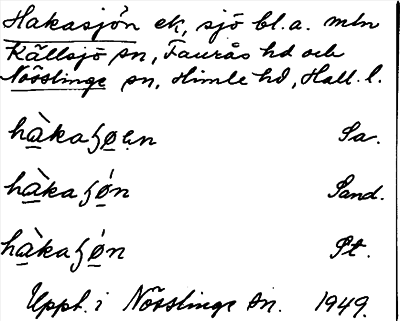 Hakasjön ek, sjö bl.a. mln
Källsjö sn, Faurås hd och
Nösslinge sn, Himle hd, Hall. l.
hàkaɧøən Sa.
hàkaɧǿn Sand.
hàkaɧǿn St.
Uppt. i Nösslinge sn. 1949.